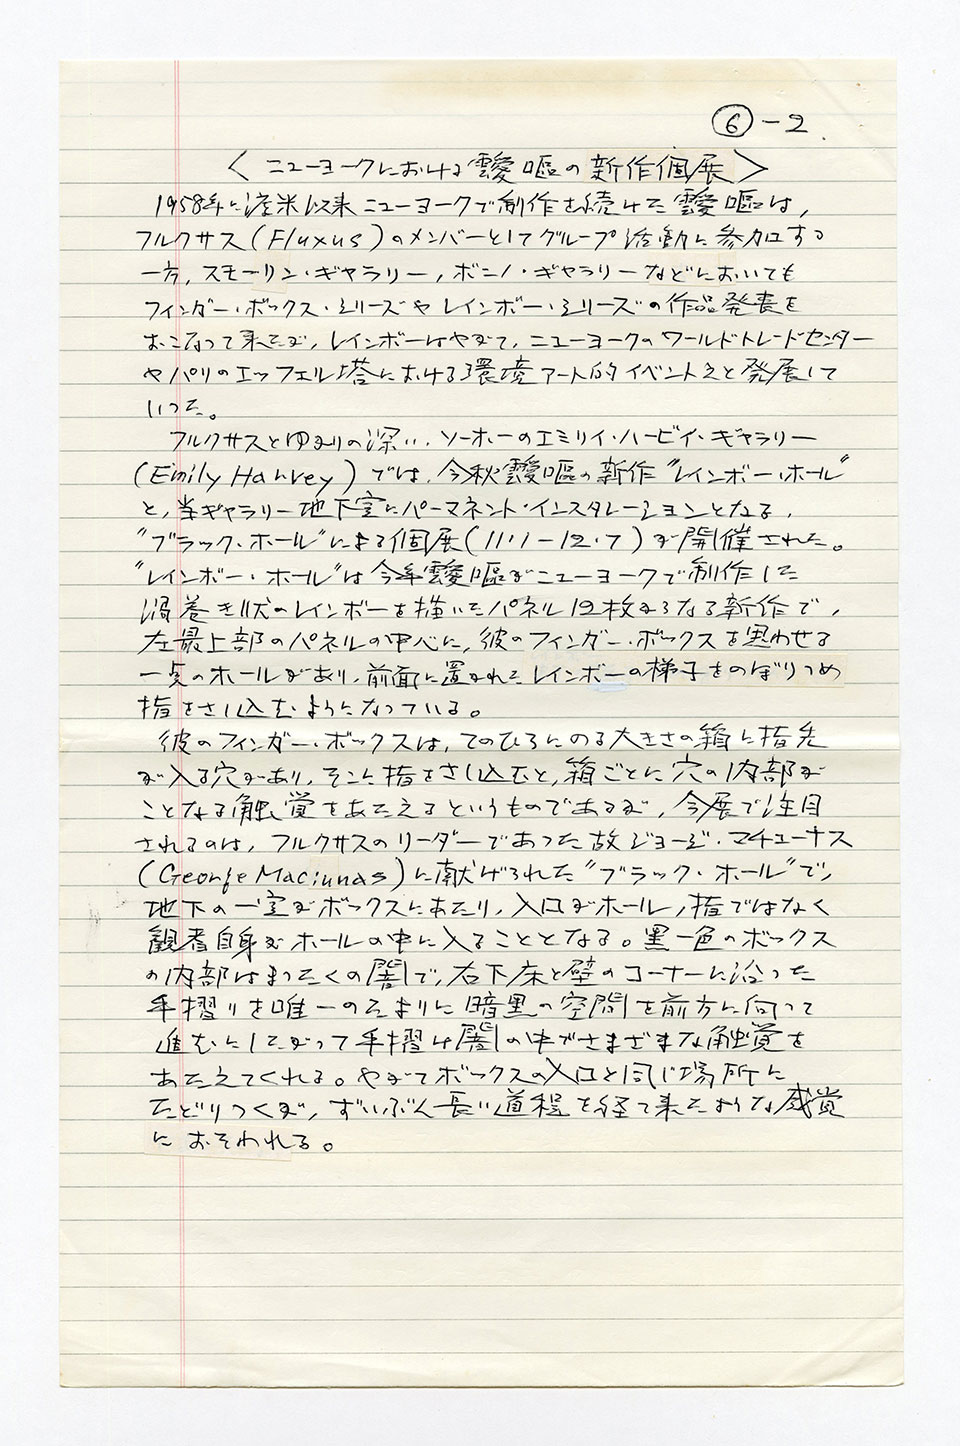 ⑥-2
〈ニューヨークにおける靉嘔の新作個展〉
1958年に渡米以来ニューヨークで制作を続けた靉嘔は,
フルクサス(Fluxus)のメンバーとしてグループ活動に参加する
一方,スモーリン・ギャラリー,ボニノ・ギャラリーなどにおいても
フィンガー・ボックス・シリーズやレインボー・シリーズの作品発表を
おこなって来たが,レインボーはやがて,ニューヨークのワールドトレードセンター
やパリのエッフェル塔における環境アート的イベントえと発展して
いった。
フルクサスとゆかりの深い,ソーホーのエミリイ・ハービイ・ギャラリー
(Emily Harvey)では,今秋靉嘔の新作〝レインボー・ホール〟
と,当ギャラリー地下室にパーマネント・インスタレーションとなる,
〝ブラック・ホール〟による個展(11・1-12・7)が開催された。
〝レインボー・ホール〟は今年靉嘔がニューヨークで制作した
渦巻き状のレインボーを描いたパネル12枚からなる新作で,
左最上部のパネルの中心に,彼のフィンガー・ボックスを思わせる
一点のホールがあり,前面に置かれたレインボーの梯子をのぼりつめ
指をさし込むようになっている。
彼のフィンガー・ボックスは,てのひらにのる大きさの箱に指先
が入る穴があり,そこに指をさし込むと,箱ごとに穴の内部が
ことなる触覚をあたえるというものであるが,今展で注目
されるのは,フルクサスのリーダーであった故ジョージ・マチューナス
(George Maciunas)に献げられた〝ブラック・ホール〟で,
地下の一室がボックスにあたり,入口がホール,指ではなく
観者自身がホールの中に入ることとなる。黒一色のボックス
の内部はまったくの闇で,右下床と壁のコーナーに沿った
手摺りを唯一のたよりに暗黒の空間を前方に向って
進むにしたがって手摺は闇の中でさまざまな触覚を
あたえてくれる。やがてボックスの入口と同じ場所に
たどりつくが,ずいぶん長い道程を経て来たような感覚
におそわれる。